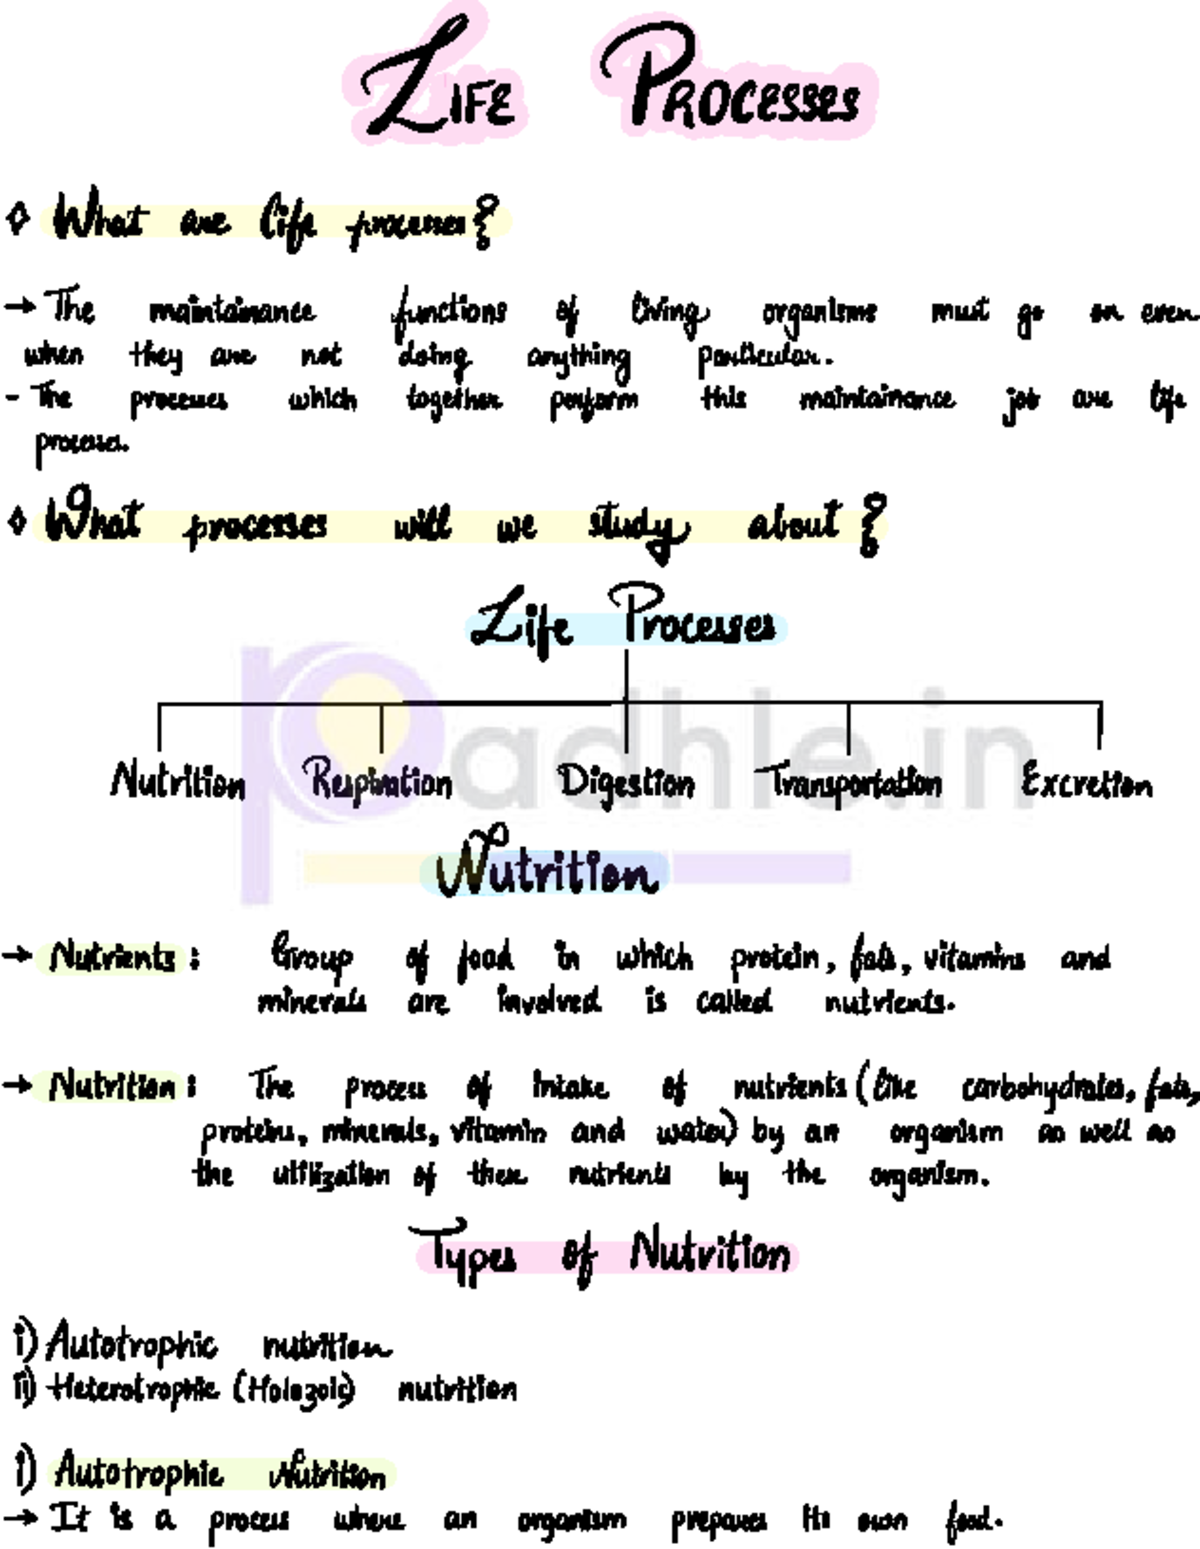 LIFE PROCESSES
What are life processes?
→ The maintainance functions of living organisms must go on even
when they are not doing anything particular.
- The processes which together perform this maintainance job are life
processes.
What processes will we study about?
Life Processes
Nutrition Respiration Digestion Transportation Excretion
padhle.in
Nutrition
→ Nutrients: Group of food in which protein, fats, vitamins and
minerals are involved is called nutrients.
→ Nutrition: The process of intake of nutrients (like carbohydrates, fats,
proteins, minerals, vitamin and water) by an organism as well as
the utilization of these nutrients by the organism.
Types of Nutrition
i) Autotrophic nutrition
ii) Heterotrophic (Holozoic) nutrition
i) Autotrophic Nutrition
→ It is a process where an organism prepares its own food.